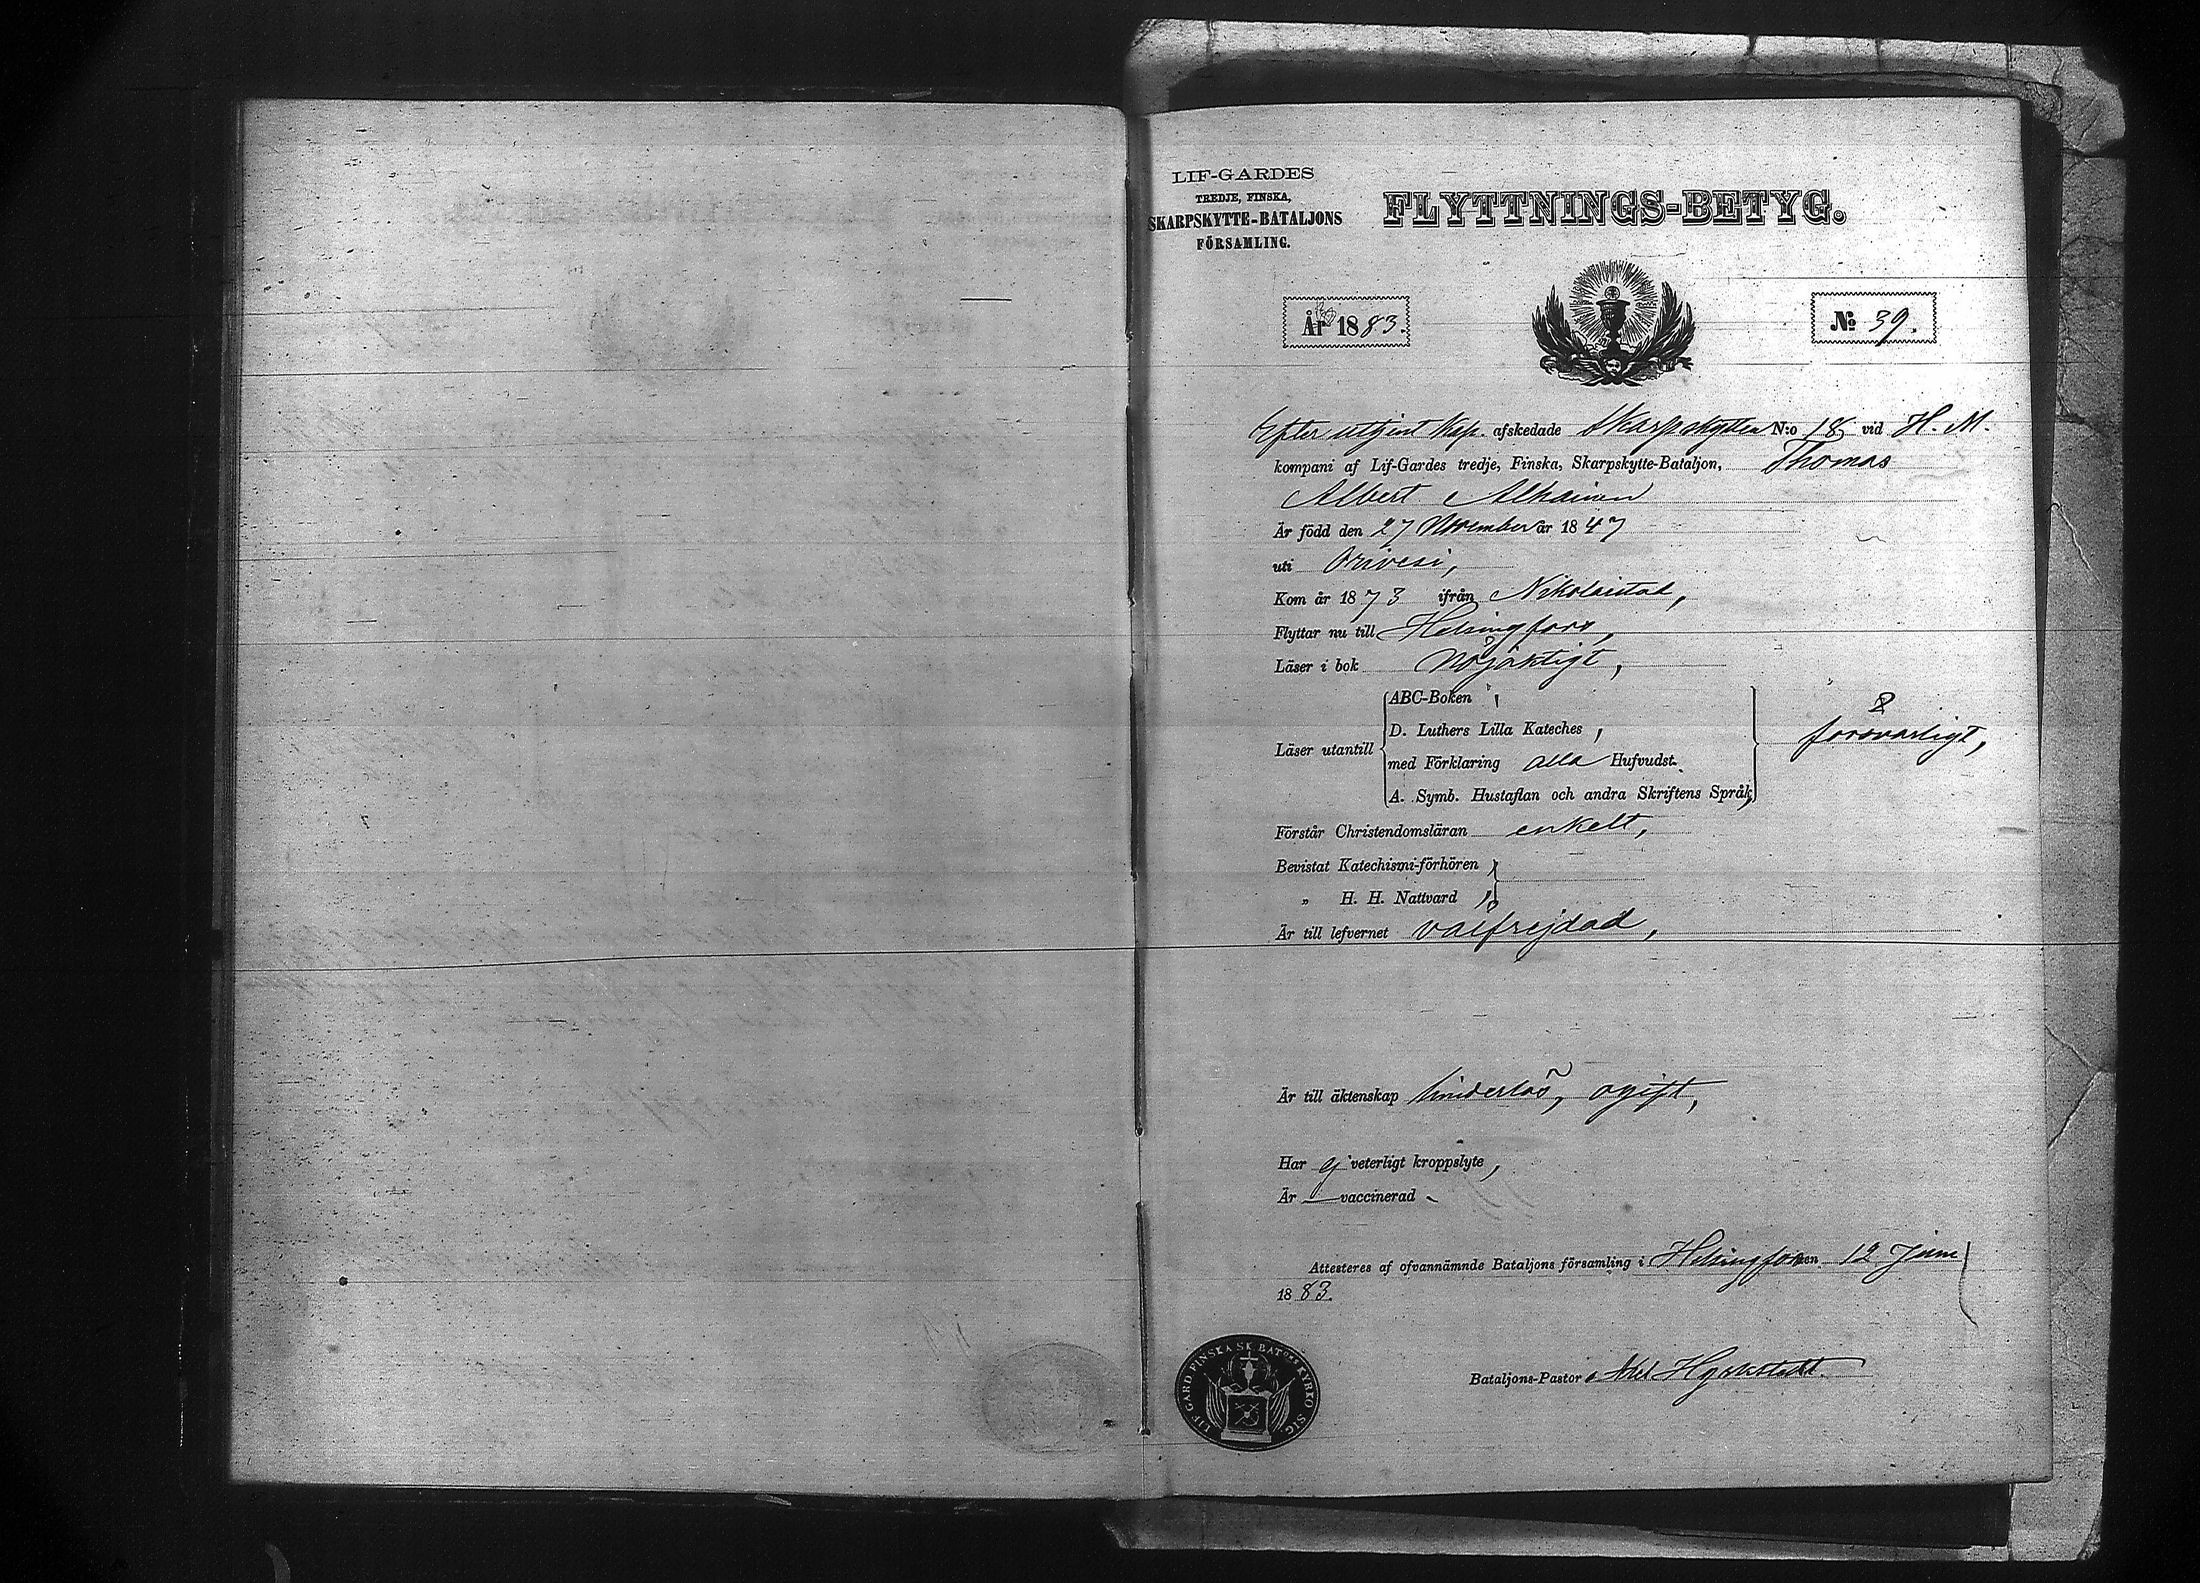 LIF-GARDES
TREDJE, FINSKA,
SKARPSKYTTE-BATALJONS
FÖRSAMLING.
FLYTTNINGS-BETYG.
År 1883.
№ 39.
Efter uttjent Kap. afskedade Skarpskytten N:o 18 vid H. M.
kompani af Lif-Gardes tredje, Finska, Skarpskytte-Bataljon, Thomas
Albert Alhainen
Är född den 27 November år 1847
uti Orivesi,
Kom år 1873 ifrån Nikolaistad,
Flyttar nu till Helsingfors,
Läser i bok nöjaktigt,
Läser utantill
ABC-Boken,
D. Luthers Lilla Kateches,
med Förklaring alla Hufvudst.
A. Symb. Hustaflan och andra Skriftens Språk,
försvarligt,
Förstår Christendomsläran enkelt,
Bevistat Katechismi-förhören
„ H. H. Nattvard
Är till lefvernet välfrejdad,
Är till äktenskap hinderlös, ogift,
Har ej veterligt kroppslyte,
Är — vaccinerad
Attesteres af ofvannämnde Bataljons församling i Helsingfors den 12 Juni
1883.
LIF GARD FINSKA SK BAT:ONS KYRKO SIG.
Bataljons-Pastor Axel